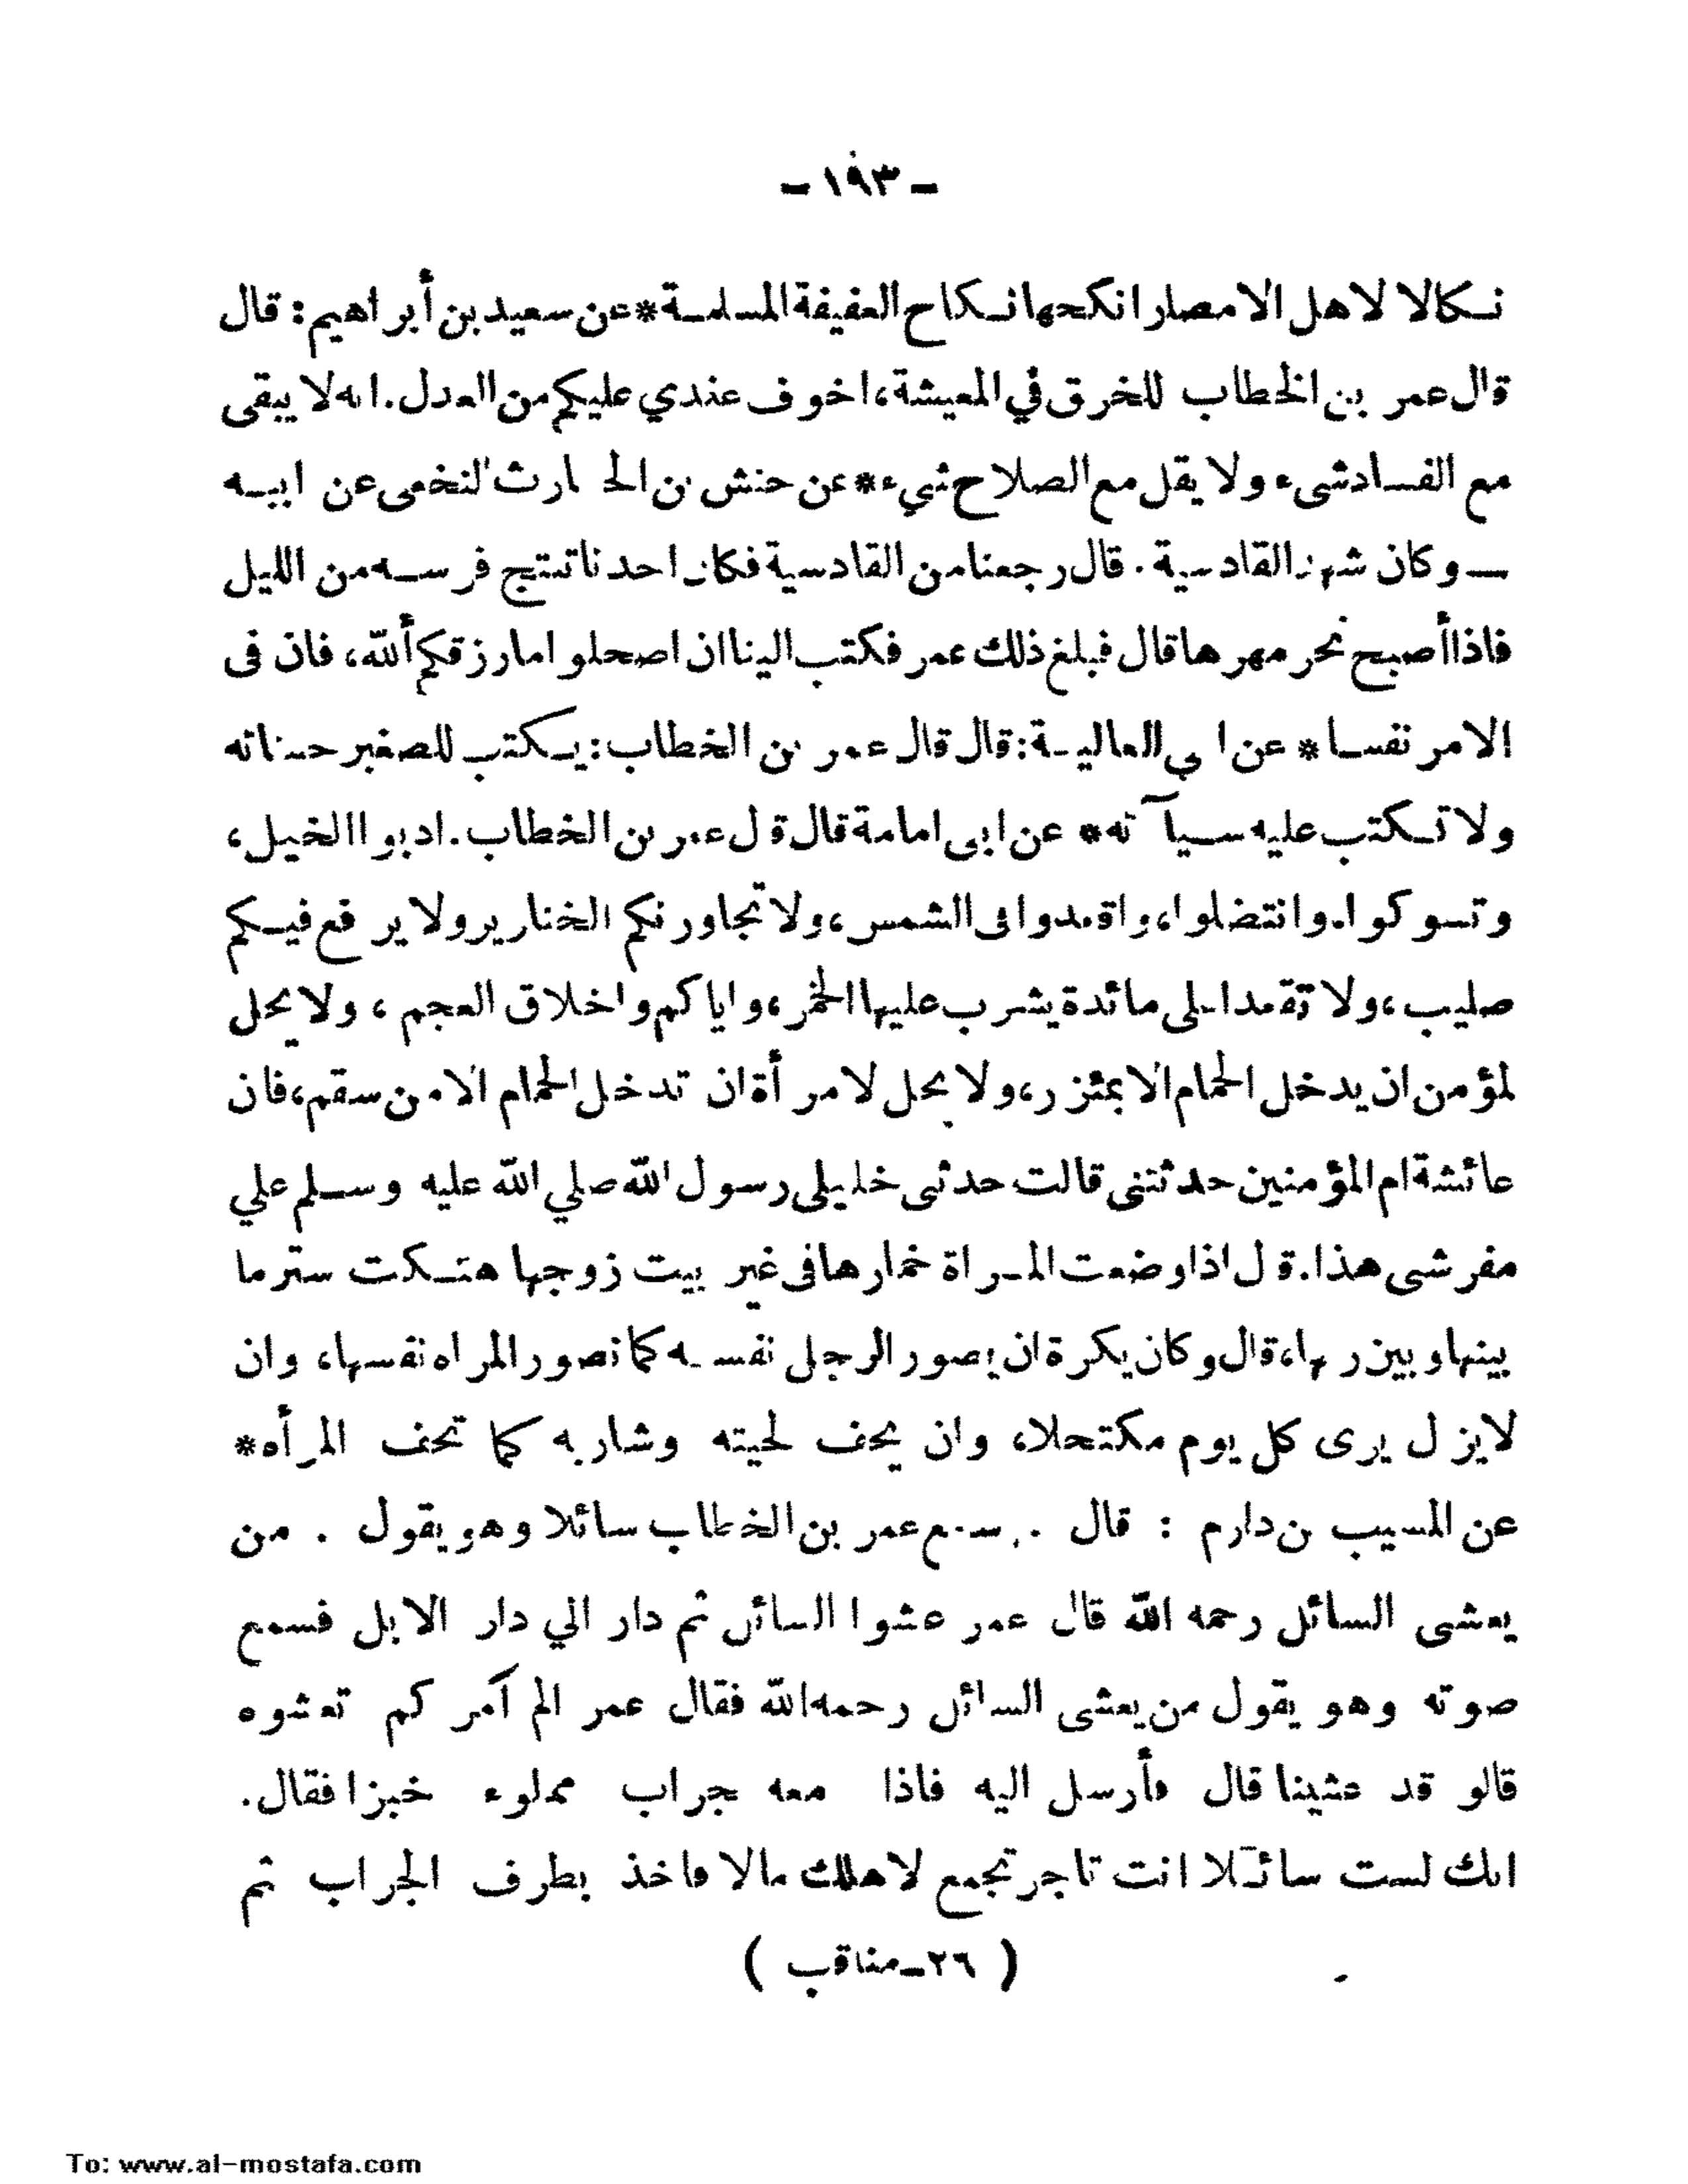 - ١٩٣ -
نكالا لاهل الامصار انكحها نكاح العفيفة المسلمة * عن سعيد بن أبراهيم : قال
قال عمر بن الخطاب للخرق في المعيشة، اخوف عندي عليكم من العدل . انه لا يبقى
مع الفساد شىء ولا يقل مع الصلاح شيء * عن حنش بن الحارث النخعى عن ابيه
ـ وكان شهد القادسية . قال رجعنا من القادسية فكان احدنا تنتج فرسه من الليل
فاذا أصبح نحر مهرها قال فبلغ ذلك عمر فكتب الينا ان اصحلوا ما رزقكم ألله، فان فى
الامر نفسا * عن ابي العالية : قال قال عمر بن الخطاب : يكتب للصغير حسناته
ولا تكتب عليه سيآته * عن ابى امامة قال قال عمر بن الخطاب . ادبوا الخيل ،
وتسوكوا . وانتضلوا، واقعدوا فى الشمس ، ولا تجاورنكم الخنازير ولا يرفع فيكم
صليب ، ولا تقعدا على مائدة يشرب عليها الخمر ، واياكم واخلاق العجم ، ولا يحل
لمؤمن ان يدخل الحمام الا بمئزر ، ولا يحل لامرأة ان تدخل الحمام الا من سقم ، فان
عائشة ام المؤمنين حدثتنى قالت حدثنى خليلى رسول الله صلي الله عليه وسلم علي
مفرشى هذا . قال اذا وضعت المراة خمارها فى غير بيت زوجها هتكت ستر ما
بينها وبين ربها، قال وكان يكرة ان يصور الرجل نفسه كما تصور المراه نفسها، وان
لايزل يرى كل يوم مكتحلا، وان يحف لحيته وشاربه كما تحف المرأه *
عن المسيب بن دارم : قال . سمع عمر بن الخطاب سائلا وهو يقول . من
يعشى السائل رحمه الله قال عمر عشوا السائل ثم دار الي دار الابل فسمع
صوته وهو يقول من يعشى السائل رحمه الله فقال عمر الم آمركم تعشوه
قالو قد عشينا قال فأرسل اليه فاذا معه جراب مملوء خبزا فقال .
انك لست سائلا انت تاجر تجمع لاهلك مالا فاخذ بطرف الجراب ثم
( ٢٦ـ مناقب )
To: www.al-mostafa.com